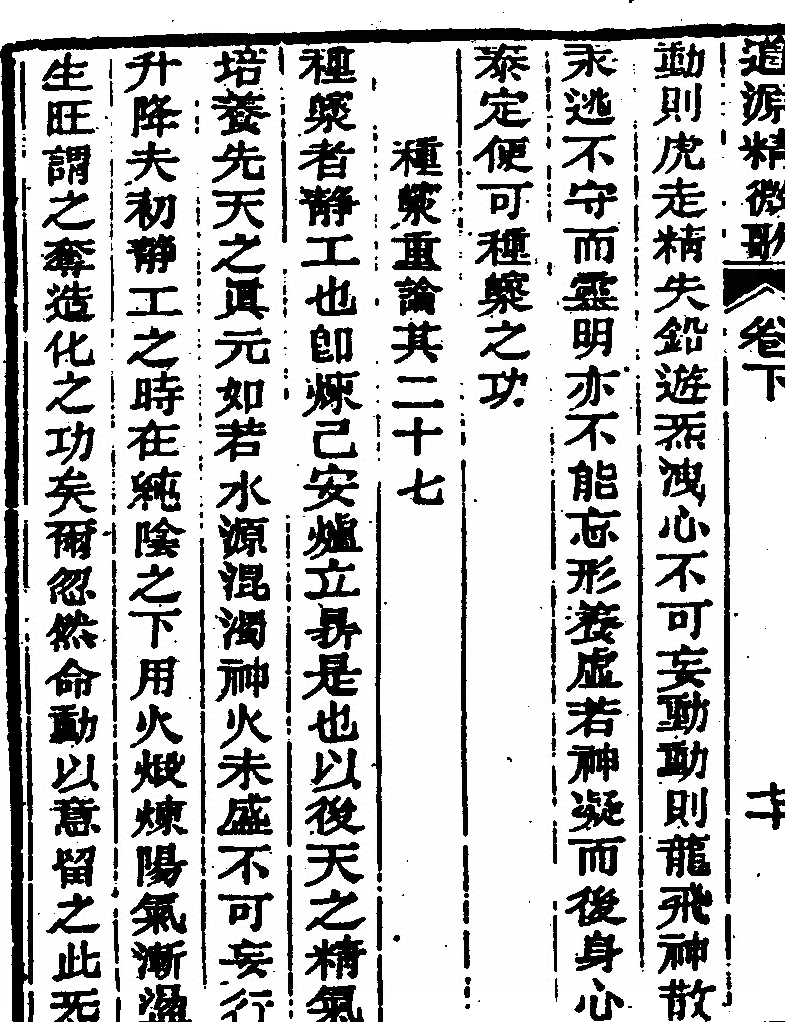 道源精微歌 卷下
動則虎走精失鉛遊炁洩心不可妄動動則龍飛神散
汞逃不守而靈明亦不能忘形養虛若神凝而後身心
泰定便可種藥之功
種藥重論其二十七
種藥者靜工也卽煉己安爐立鼎是也以後天之精氣
培養先天之眞元如若水源混濁神火未盛不可妄行
升降夫初靜工之時在純陰之下用火煅煉陽氣漸
生旺謂之奪造化之功矣爾忽然命動以意留之此炁